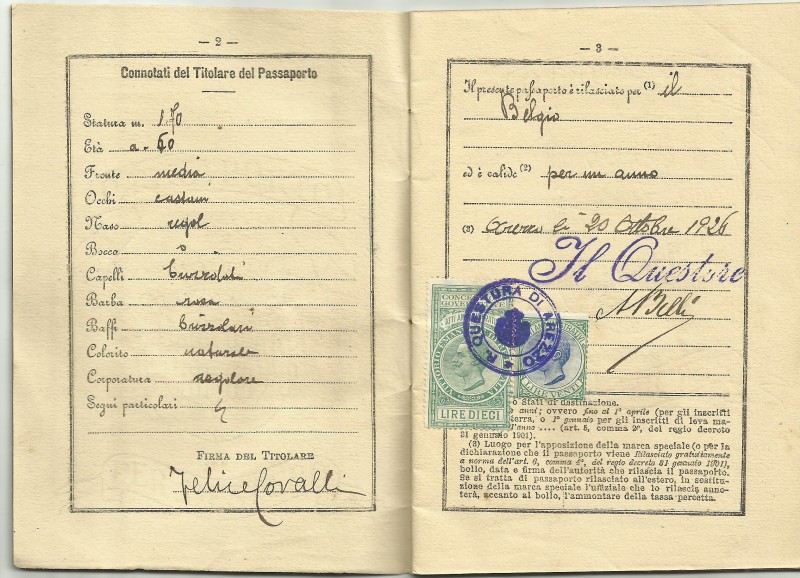 — 2 —
Connotati del Titolare del Passaporto
Statura m. 1.70
Età a. 60
Fronte media
Occhi castani
Naso regol
Bocca
Capelli
Barba rasa
Baffi
Colorito naturale
Corporatura regolare
Segni particolari
FIRMA DEL TITOLARE
Felice Covalli
— 3 —
Il presente passaporto è rilasciato per (1) il
Belgio
ed è valido (2) per un anno
(3) Arezzo li 20 Ottobre 1926
Il Questore
A Belli
R. QUESTURA DI AREZZO
LIRE DIECI
LIRE VENTI
o Stati di destinazione.
anni; ovvero fino al 1° aprile (per gli inscritti
terra, o 1° gennaio per gli inscritti di leva ma-
ll'anno .... (art. 5, comma 2°, del regio decreto
31 gennaio 1901).
(3) Luogo per l'apposizione della marca speciale (o per la
dichiarazione che il passaporto viene Rilasciato gratuitamente
a norma dell'art. 6, comma 4°, del regio decreto 31 gennaio 1901),
bollo, data e firma dell'autorità che rilascia il passaporto.
Se si tratta di passaporto rilasciato all'estero, in sostitu-
zione della marca speciale l'uffiziale che lo rilascia anno-
terà, accanto al bollo, l'ammontare della tassa percetta.